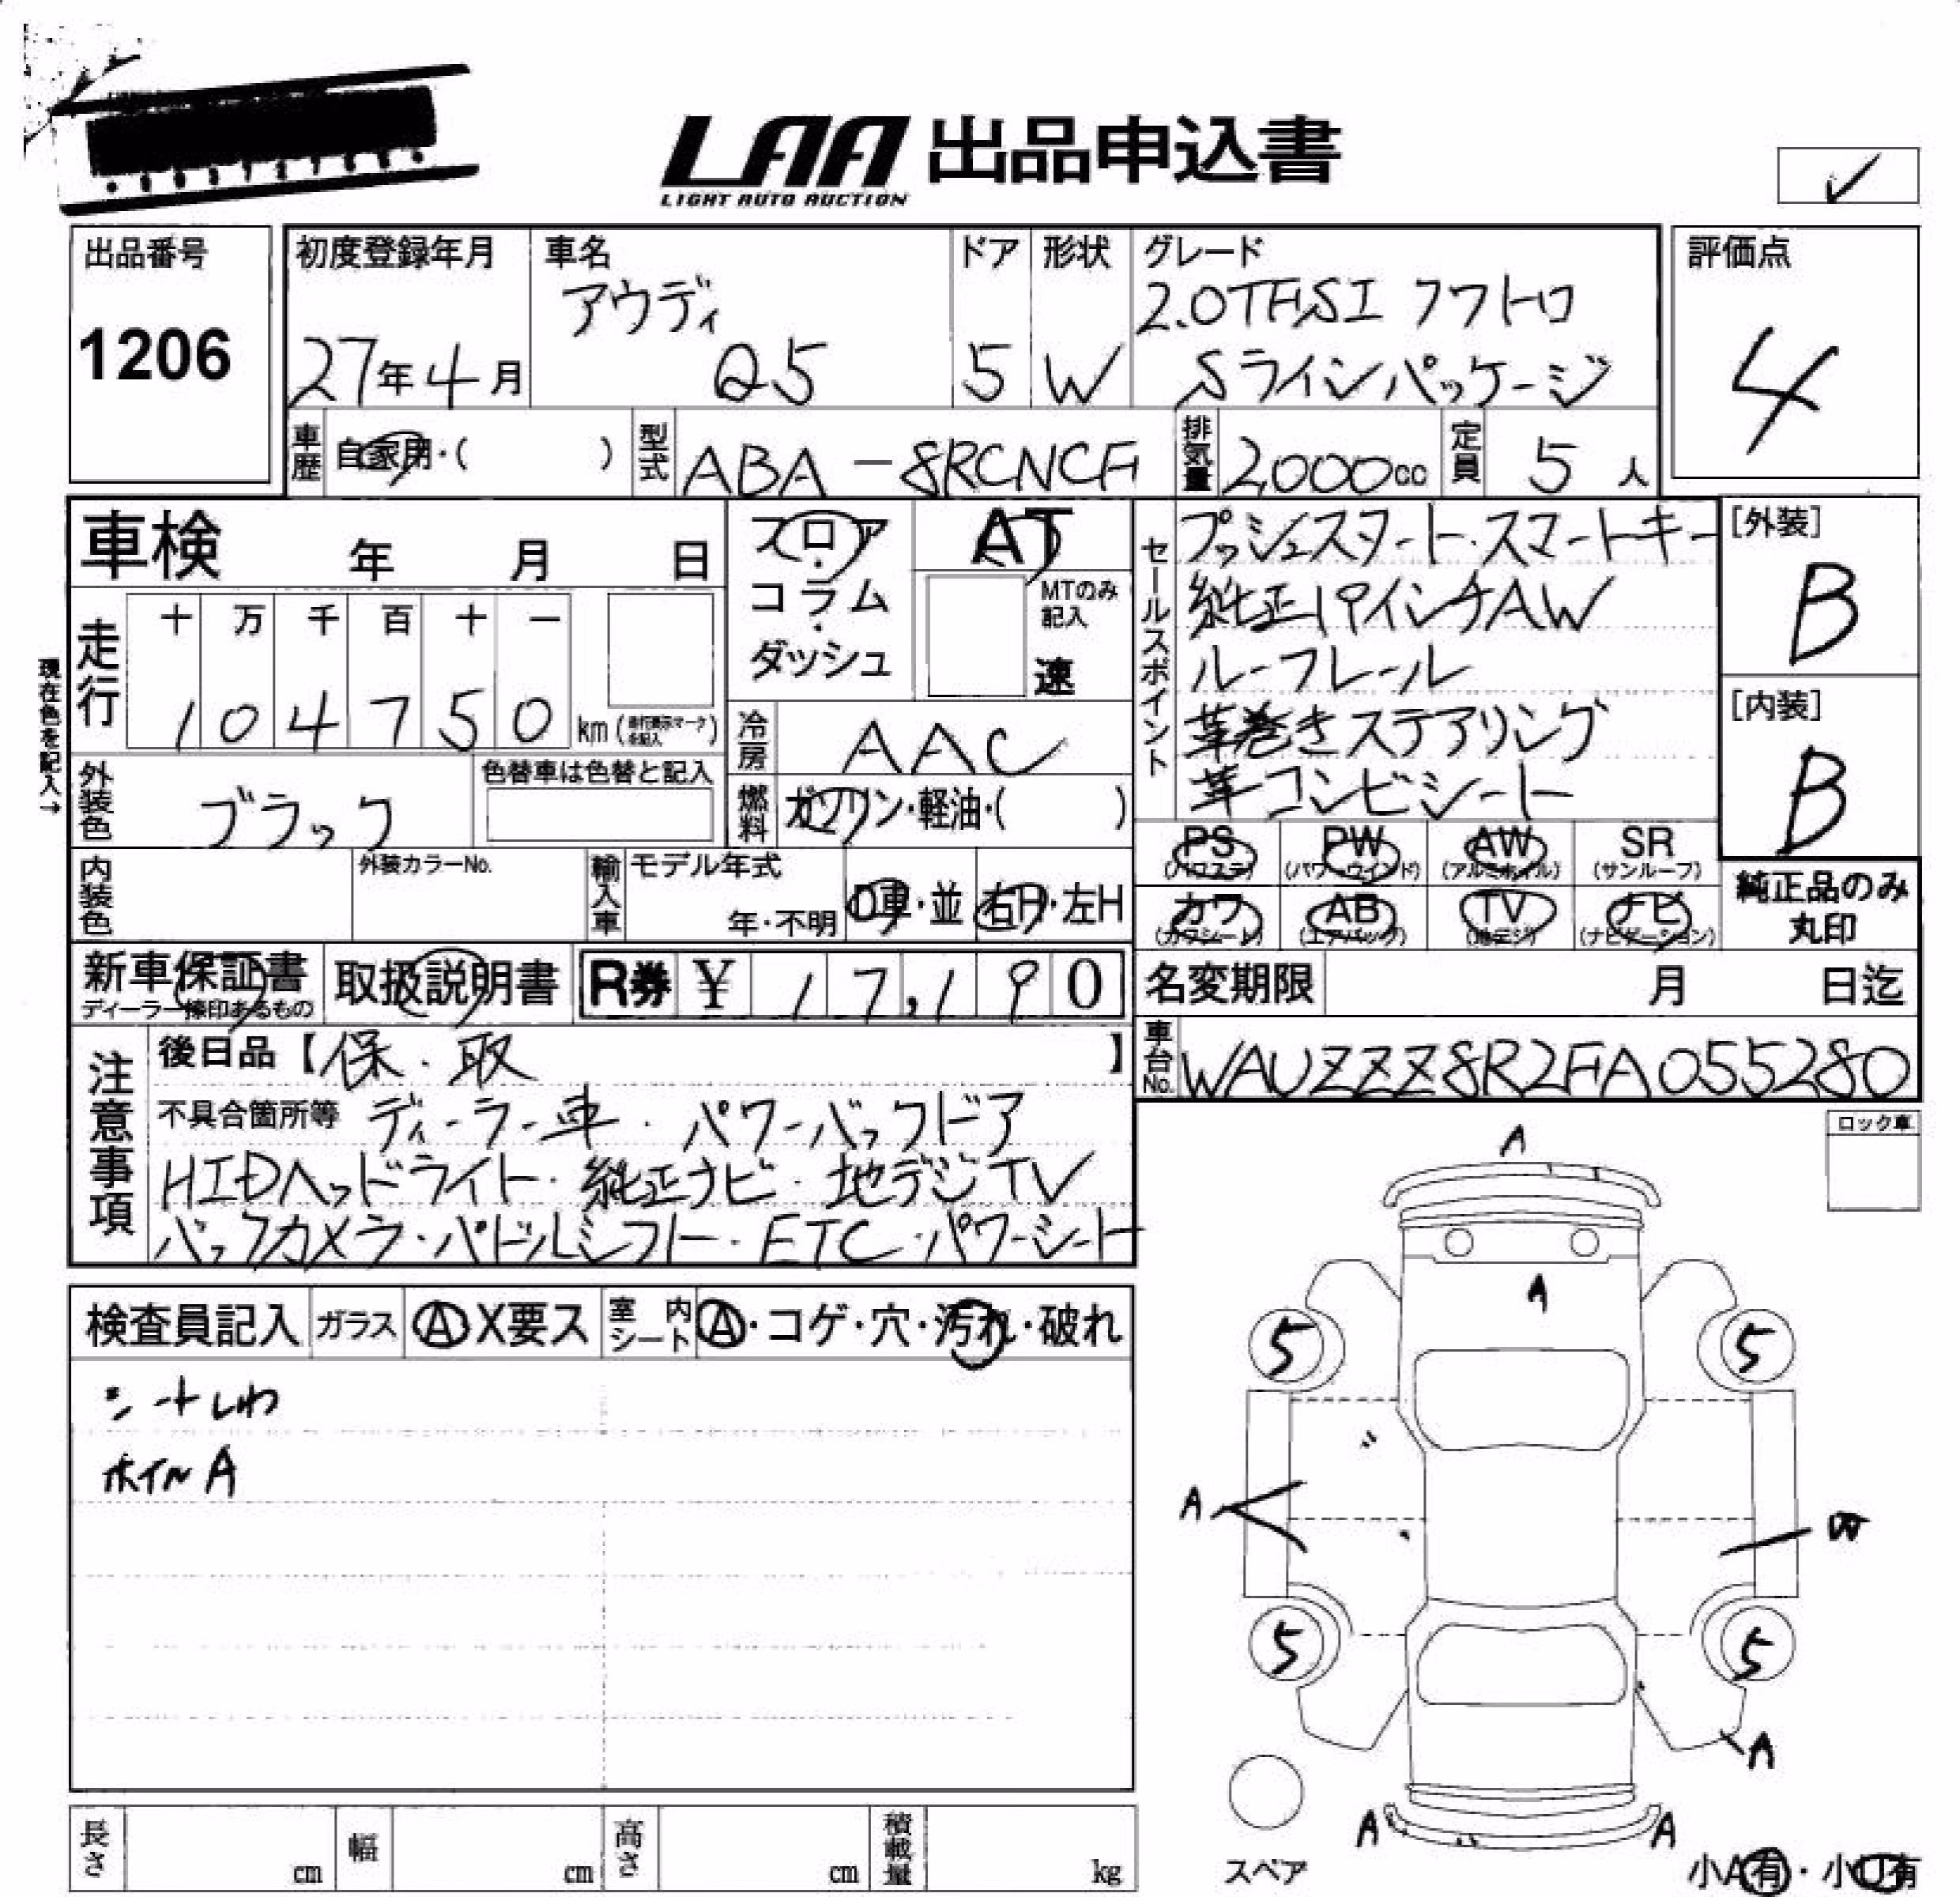 LAA 出品申込書
LIGHT AUTO AUCTION
✓
出品番号
1206
初度登録年月
27年4月
車名
アウディ
Q5
ドア
5
形状
W
グレード
2.0TFSI クワトロ
Sラインパッケージ
評価点
4
車歴
自家用・( )
型式
ABA-8RCNCF
排気量
2,000cc
定員
5人
車検 年 月 日
走行
十 万 千 百 十 一
1 0 4 7 5 0 km(走行表示マークを記入)
現在色を記入→
外装色
ブラック
色替車は色替と記入
内装色
外装カラーNo.
フロア・コラム・ダッシュ
AT
MTのみ記入
速
冷房
AAC
燃料
ガソリン・軽油・( )
輸入車
モデル年式
年・不明
D車・並
右H・左H
セールスポイント
プッシュスタート・スマートキー
純正19インチAW
ルーフレール
革巻きステアリング
革コンビシート
[外装]
B
[内装]
B
PS (パワステ)
PW (パワーウインド)
AW (アルミホイル)
SR (サンルーフ)
カワ (カワシート)
AB (エアバッグ)
TV (地デジ)
ナビ (ナビゲーション)
純正品のみ丸印
新車保証書
ディーラー捺印あるもの
取扱説明書
R券 ¥ 17,190
名変期限 月 日迄
車台No.
WAUZZZ8R2FA055280
注意事項
後日品【保・取 】
不具合箇所等 ディーラー車・パワーバックドア
HIDヘッドライト・純正ナビ・地デジTV
バックカメラ・パドルシフト・ETC・パワーシート
ロック車
検査員記入
ガラス
A X要ス
室内シート
A・コゲ・穴・汚れ・破れ
シートしわ
ホイルA
A
A
5
5
A
5
5
A
A
A
スペア
小A有・小U有
長さ cm
幅 cm
高さ cm
積載量 kg